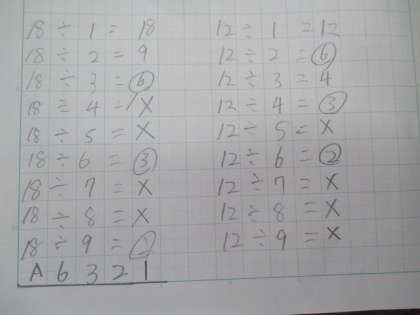 18 ÷ 1 = 18
18 ÷ 2 = 9
18 ÷ 3 = 6
18 ÷ 4 = X
18 ÷ 5 = X
18 ÷ 6 = 3
18 ÷ 7 = X
18 ÷ 8 = X
18 ÷ 9 =
A 6 3 2 1
12 ÷ 1 = 12
12 ÷ 2 = 6
12 ÷ 3 = 4
12 ÷ 4 = 3
12 ÷ 5 = X
12 ÷ 6 = 2
12 ÷ 7 = X
12 ÷ 8 = X
12 ÷ 9 = X